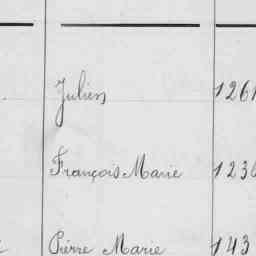 Julien 126
François Marie 123
Pierre Marie 143